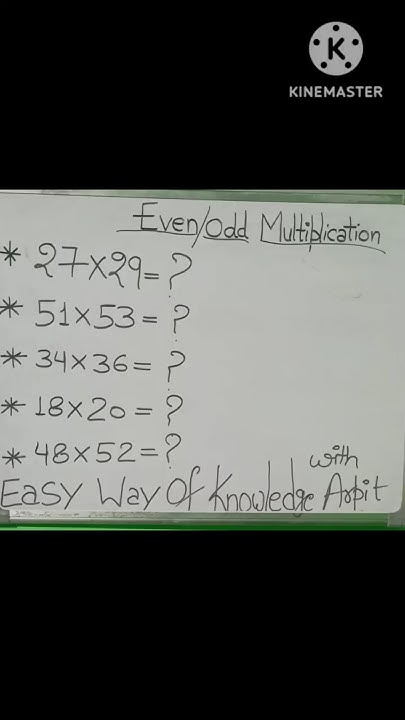 KINEMASTER
Even/Odd Multiplication
* 27×29=?
* 51×53=?
* 34×36=?
* 18×20=?
* 48×52=?
with
Easy Way Of Knowledge Arpit